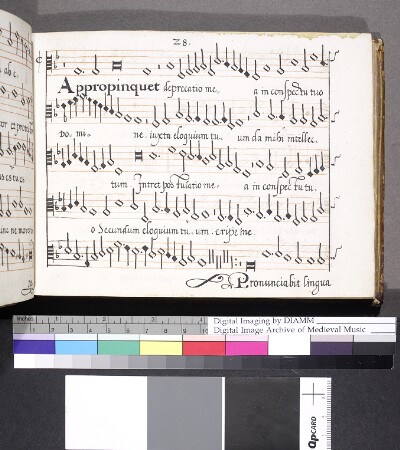 28.
Appropinquet deprecatio me. a in conspectu tuo
Do. mi. ne. iuxta eloquium tu. um da mihi intellec.
tum Intret postulatio me. a in conspectu tu.
o Secundum eloquium tu. um. eripe me.
Pronunciabit lingua
inches 1 2 3 4 5 6 7 8
Digital Imaging by DIAMM
Digital Image Archive of Medieval Music
QPCARD